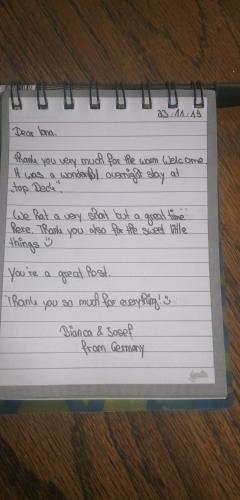 23.11.19
Dear Iona.
Thank you very much for the warm Welcome.
It was a wonderful overnight stay at
"top Deck".
We hat a very short but a great time
here. Thank you also for the sweet little
things ☺
You're a great Host.
Thank you so much for everything! ☺
Bianca & Josef
from Germany